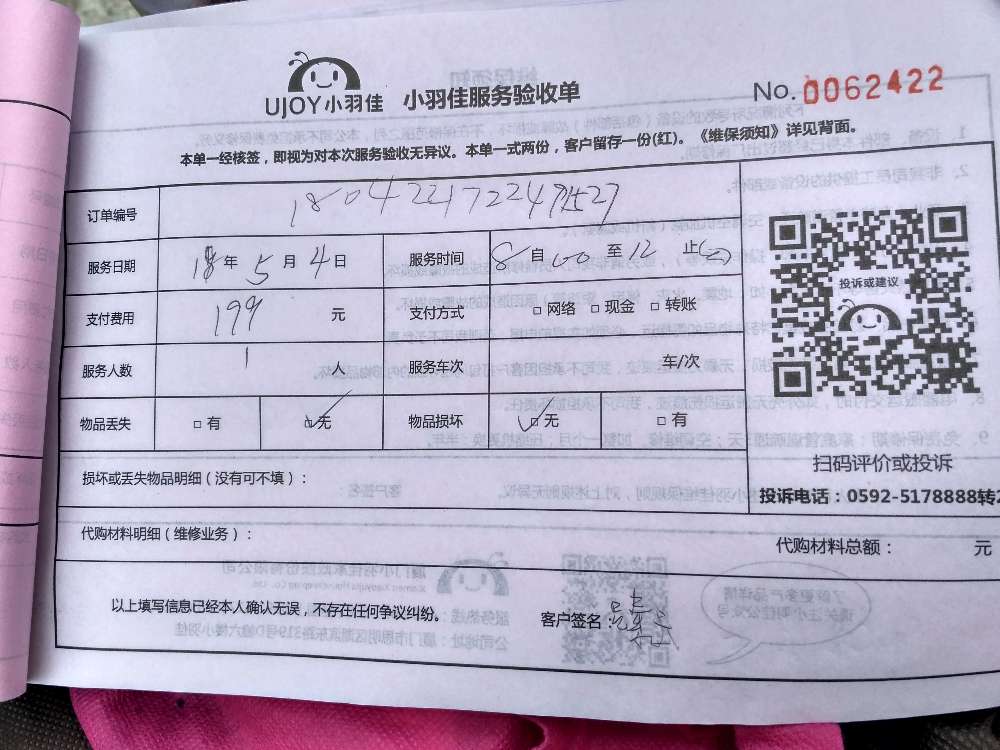 UJOY小羽佳 小羽佳服务验收单 No.0062422
本单一经核签，即视为对本次服务验收无异议。本单一式两份，客户留存一份(红)。《维保须知》详见背面。
订单编号
服务日期 18年5月4日 服务时间 8自00至12止
支付费用 199 元 支付方式 □网络 □现金 □转账
服务人数 1 人 服务车次 车/次
物品丢失 □有 □无 物品损坏 □无 □有
投诉或建议
扫码评价或投诉
投诉电话：0592-5178888转2
损坏或丢失物品明细（没有可不填）：
代购材料明细（维修业务）：
代购材料总额： 元
以上填写信息已经本人确认无误，不存在任何争议纠纷。 客户签名：